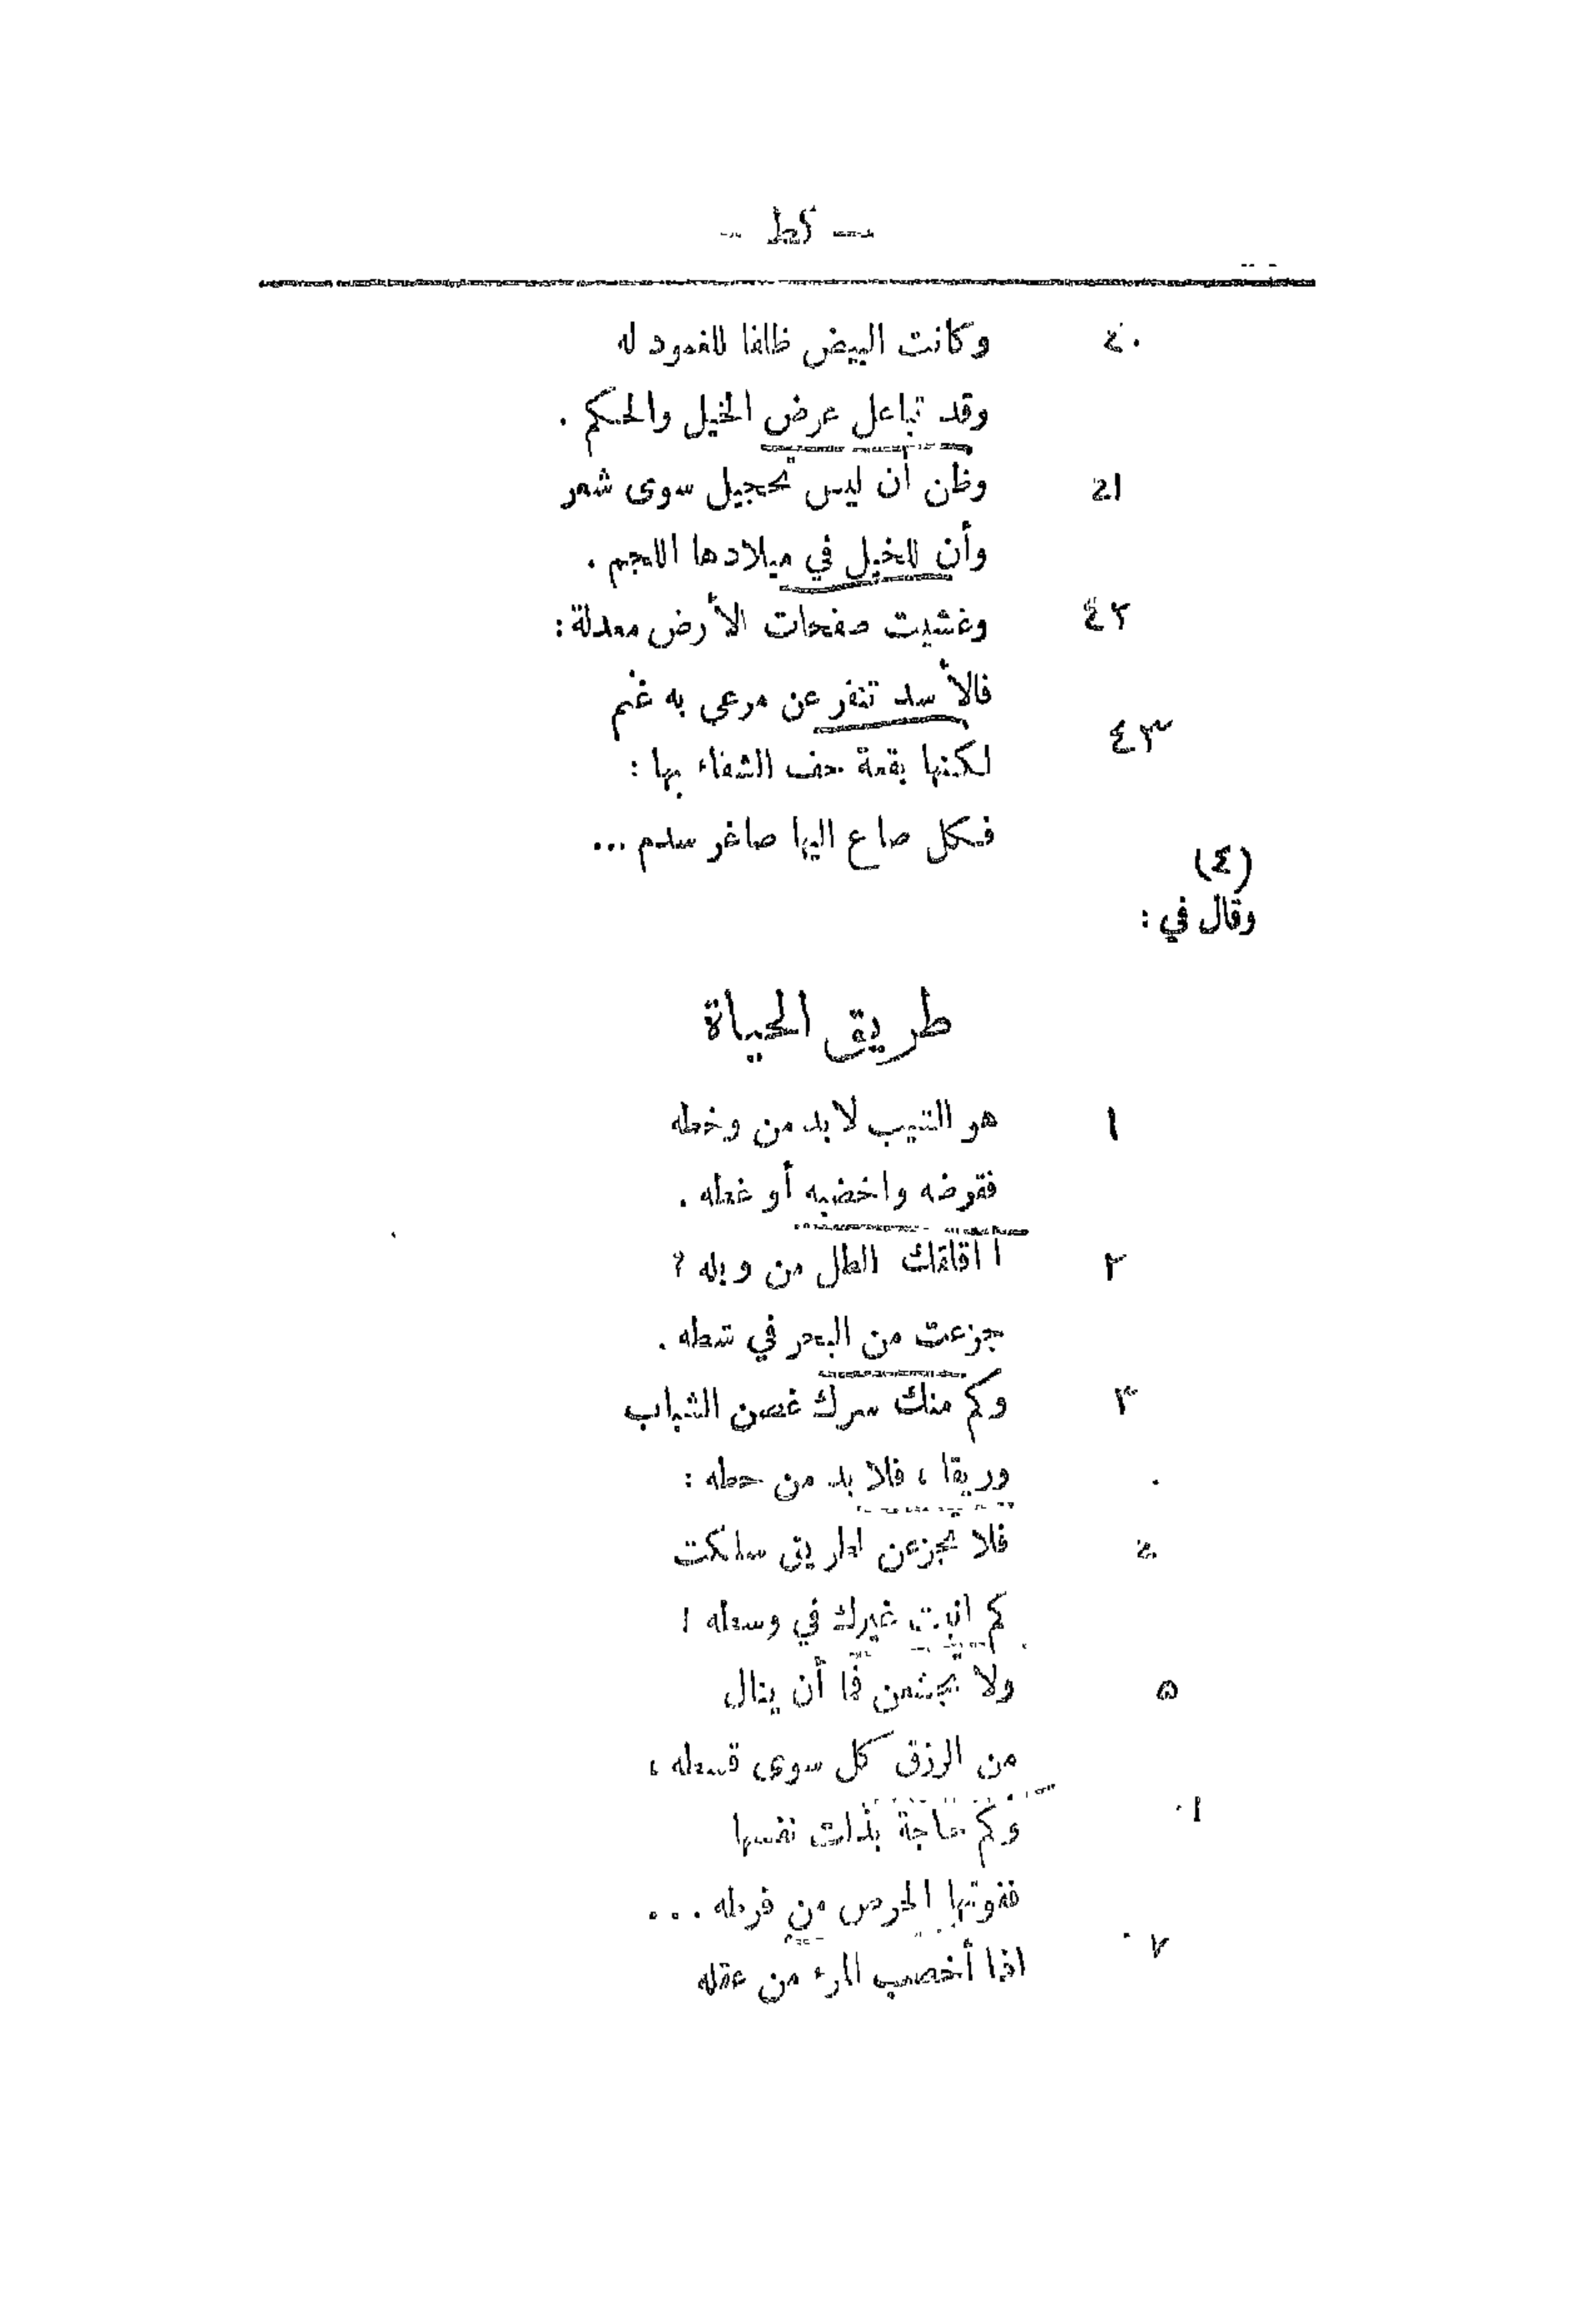 — كط —
٤٠ وكانت البيض ظلفا للغمود له
وقد تباعل عرض الخيل والحكم .
٤١ وظن أن ليس تحجيل سوى شعر
وأن للخيل في ميلادها اللجم .
٤٢ وغشيت صفحات الأرض معدلة :
فالأسد تنفر عن مرعى به غنم
٤٣ لكنها بقعة حف الشفاء بها :
فكل صاع اليها صاغر سدم ...
(٤)
وقال في :
طريق الحياة
١ هو الشيب لابد من وخطه
فقرضه واخضبه أو غطه .
٢ اأقلقك الطل من وبله ?
جزعت من البحر في شطه .
٣ وكم منك سرك غصن الشباب
وريقا ، فلا بد من حطه :
٤ فلا تجزعن لطريق سلكت
كم انبت غيرك في وسطه !
٥ ولا تجشعن فما أن ينال
من الرزق كل سوى قسطه ،
وكم حاجة بذلت نفسها
ففوتها الحرص من فرطه ...
٧ اذا أخصب المرء من عقله